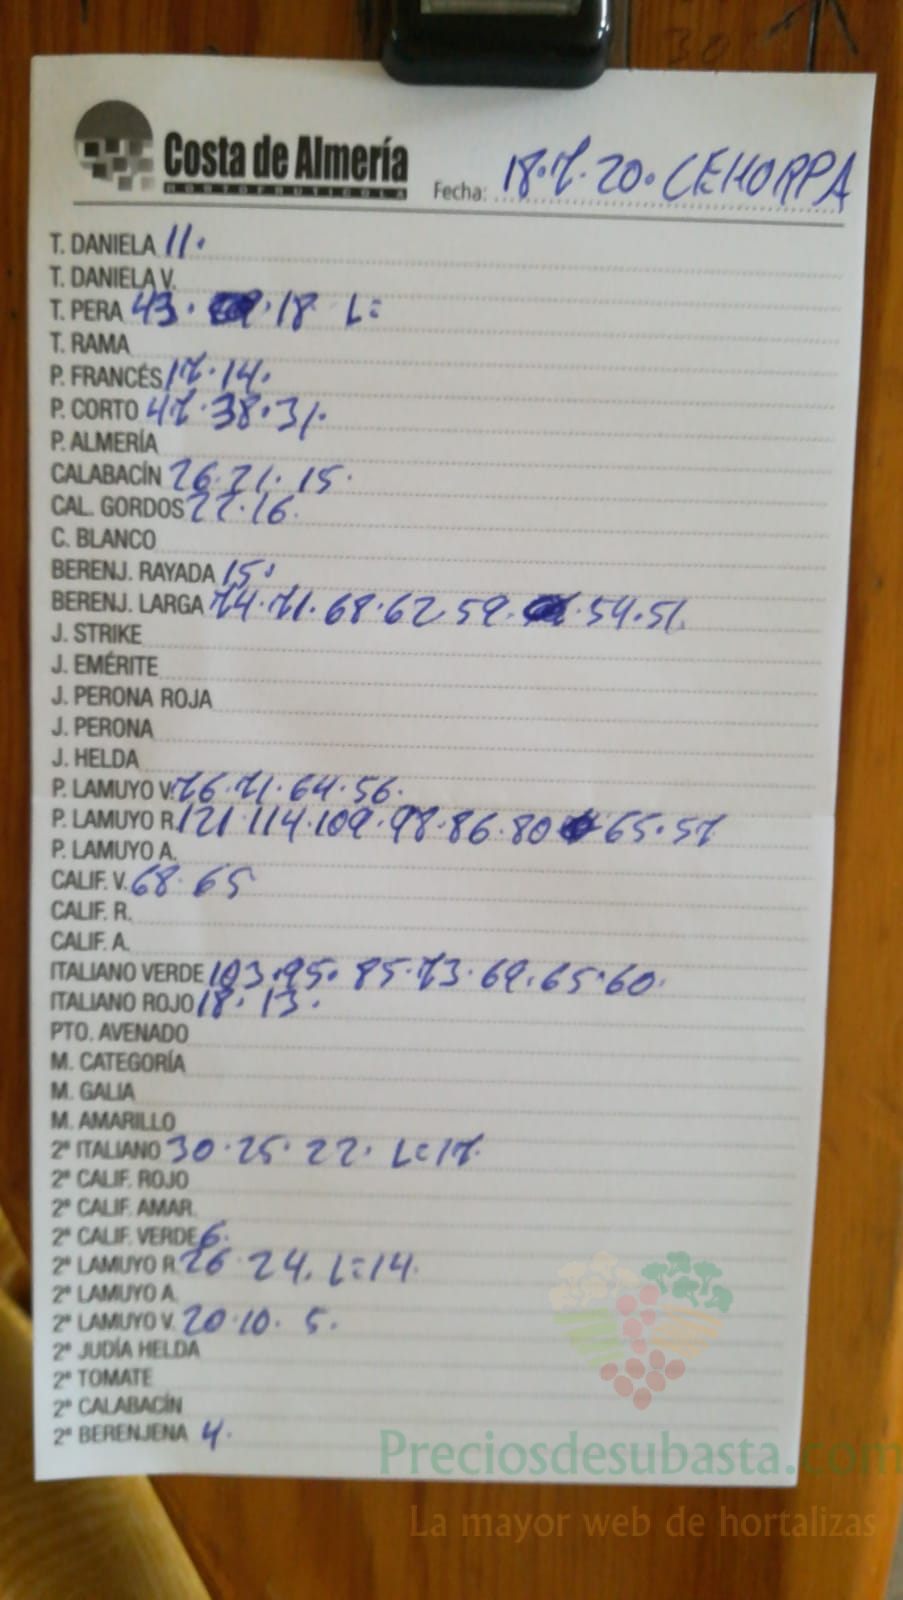 Costa de Almería
HORTOFRUTICOLA
Fecha: 18.7.20. CEHORPA
T. DANIELA 11.
T. DANIELA V.
T. PERA 43. 18 L=
T. RAMA
P. FRANCÉS 17.14.
P. CORTO 47.38.31.
P. ALMERÍA
CALABACÍN 26.21.15.
CAL. GORDOS 22.16.
C. BLANCO
BERENJ. RAYADA 15.
BERENJ. LARGA 74.71.68.62 59. 54.51.
J. STRIKE
J. EMÉRITE
J. PERONA ROJA
J. PERONA
J. HELDA
P. LAMUYO V. 76.71.64.56.
P. LAMUYO R. 121.114.109.98.86.80 65.57
P. LAMUYO A.
CALIF. V. 68.65
CALIF. R.
CALIF. A.
ITALIANO VERDE 103.95.85.73.69.65.60.
ITALIANO ROJO 18.13.
PTO. AVENADO
M. CATEGORÍA
M. GALIA
M. AMARILLO
2ª ITALIANO 30.25.22. L=17.
2ª CALIF. ROJO
2ª CALIF. AMAR.
2ª CALIF. VERDE 6.
2ª LAMUYO R. 26 24. L=14.
2ª LAMUYO A.
2ª LAMUYO V. 20.10.5.
2ª JUDÍA HELDA
2ª TOMATE
2ª CALABACÍN
2ª BERENJENA 4.
Preciosdesubasta.com
La mayor web de hortalizas